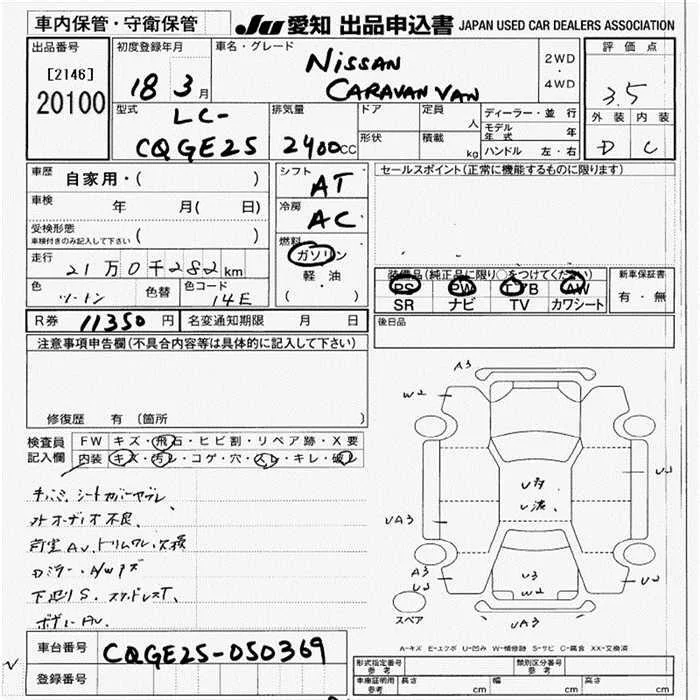 車内保管・守衛保管
JU 愛知 出品申込書 JAPAN USED CAR DEALERS ASSOCIATION
出品番号
[2146]
20100
初度登録年月
18 3月
車名・グレード
NiSSAN
CARAVAN VAN
2WD
・
4WD
評価点
3.5
外装 内装
D C
型式
LC-
CQGE25
排気量
2400cc
ドア
定員
人
形状
積載
kg
ディーラー・並行
モデル年式 年
ハンドル 左・右
車歴 自家用・( )
車検 年 月( 日)
受検形態
車検付きのみ記入して下さい ( )
走行
21万0千282km
色
ツートン
色替
色コード
14E
シフト
AT
冷房
AC
燃料
ガソリン
軽・油
(・ )
セールスポイント(正常に機能するものに限ります)
装備品(純正品に限り○をつけてください)
PS PW エアB AW
SR ナビ TV カワシート
新車保証書
有・無
R券 11350円
名変通知期限 月 日
後日品
注意事項申告欄(不具合内容等は具体的に記入して下さい)
修復歴 有 (箇所 )
検査員
記入欄
FW キズ・飛石・ヒビ割・リペア跡・X要
内装 キズ・汚レ・コゲ・穴・スレ・キレ・破レ
オーディオ不良、
A3
W2
U3
UA3
A3
U2
U2
U3
W2
UA3
スペア
A-キズ E-エクボ U-凹み W-補修跡 S-サビ C-腐食 XX-交換済
車台番号 CQGE25-050369
登録番号
形式指定番号
参考
類別区分番号
参考
車庫証明用
参考
長さ cm
幅 cm
高さ cm